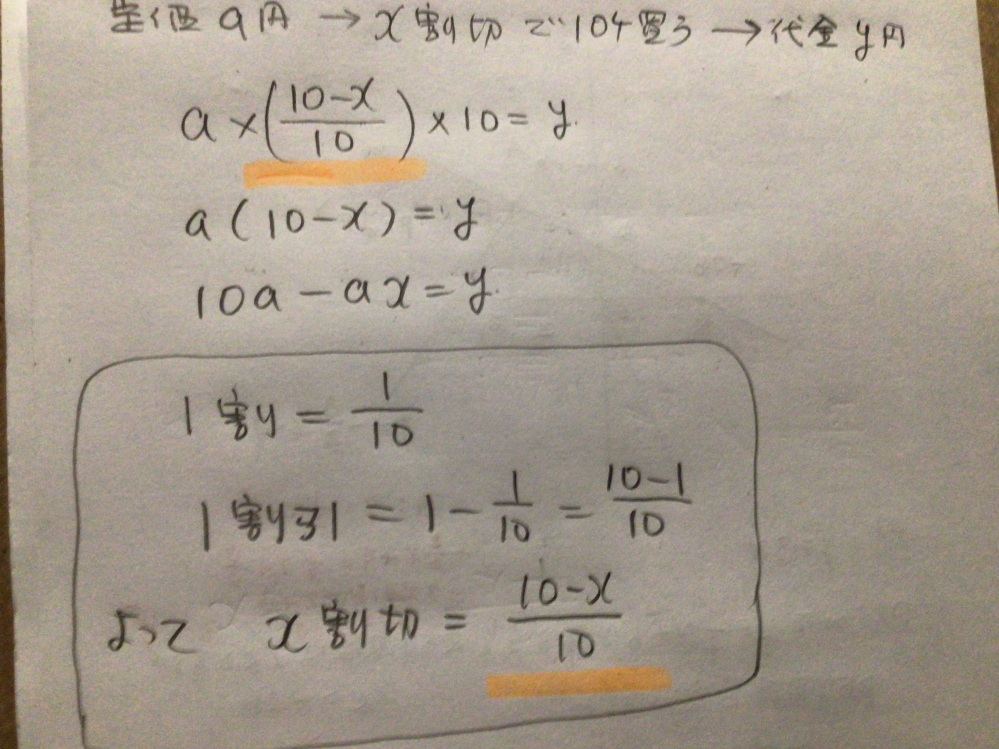 定価a円 → x割引で10ケ買う → 代金y円
a × (10-x/10) × 10 = y
a(10-x) = y
10a - ax = y
1割 = 1/10
1割引 = 1 - 1/10 = 10-1/10
よって x割引 = 10-x/10